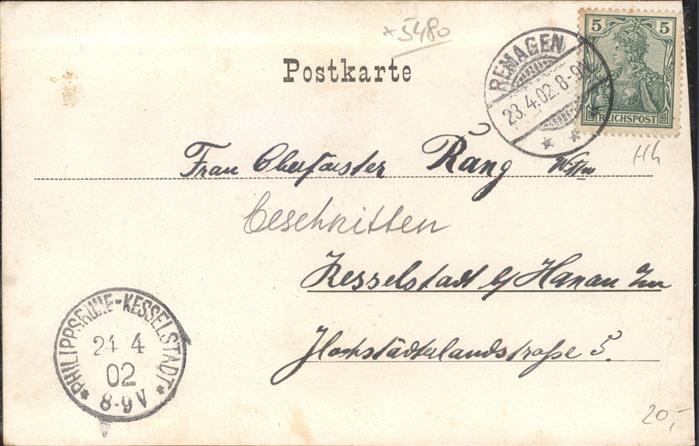 *5480
5 5
REICHSPOST
REMAGEN
23.4.02.8-9N
* *
Postkarte
Hh
Frau Oberförster Rang
beschnitten
Kesselstadt b/ Hanau
Hochstädterlandstraße 5.
*PHILIPPSRUHE-KESSELSTADT*
24 4
02
8-9V
20,-